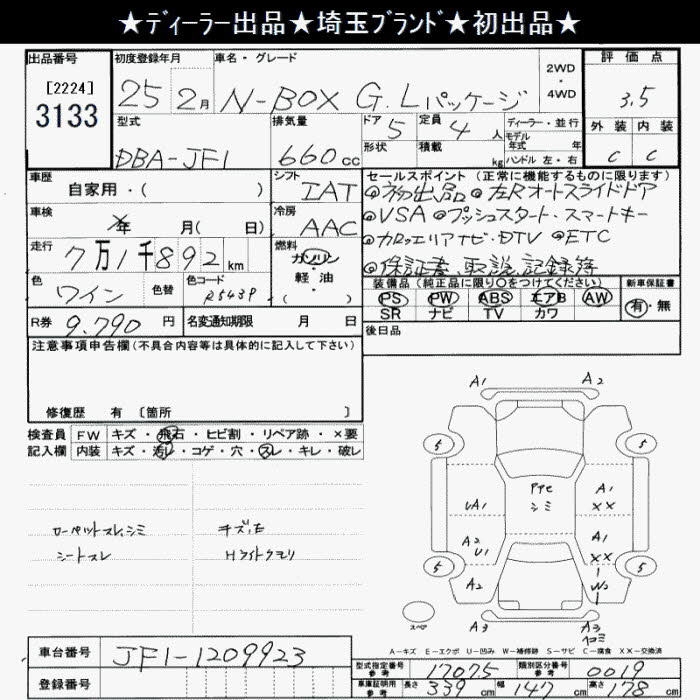 ★ディーラー出品★埼玉ブランド★初出品★
出品番号 初度登録年月 車名・グレード 2WD・4WD 評価点
[2224] 3133 25 2月 N-BOX G.Lパッケージ 3.5
型式 排気量 ドア 5 定員 4人 ディーラー・並行 外装 内装
DBA-JF1 660cc 形状 積載 kg モデル年式 年 ハンドル 左・右 C C
車歴 自家用・( ) シフト IAT セールスポイント (正常に機能するものに限ります)
◎初出品 ◎左Rオートスライドドア
車検 年 月( 日) 冷房 AAC ◎VSA ◎プッシュスタート・スマートキー
走行 7万1千892km 燃料 ガソリン・軽油 ( ) ◎カロッェリアナビ・DTV ◎ETC
◎保証書、取説、記録簿
色 ワイン 色替 色コード R543P 装備品 (純正品に限り○をつけてください) 新車保証書
PS PW ABS エアB AW 有・無
SR ナビ TV カワ
R券 9.790円 名変通知期限 月 日 後日品
注意事項申告欄(不具合内容等は具体的に記入して下さい)
修復歴 有 [箇所 ]
検査員 FW キズ・飛石・ヒビ割・リペア跡・×要
記入欄 内装 キズ・汚レ・コゲ・穴・スレ・キレ・破レ
シートスレ Hライトクモリ
A1 A2
5 5
UA1 シミ A1 XX
A2 U1 A1 XX
5 5
A2 W2
スペア A3 A3 ヘコミ
A-キズ E-エクボ U-凹み W-補修跡 S-サビ C-腐食 XX-交換済
車台番号 JF1-1209923
型式指定番号 参考 17075 類別区分番号 参考 0019
車庫証明用 参考 長さ 339cm 幅 147cm 高さ 178cm